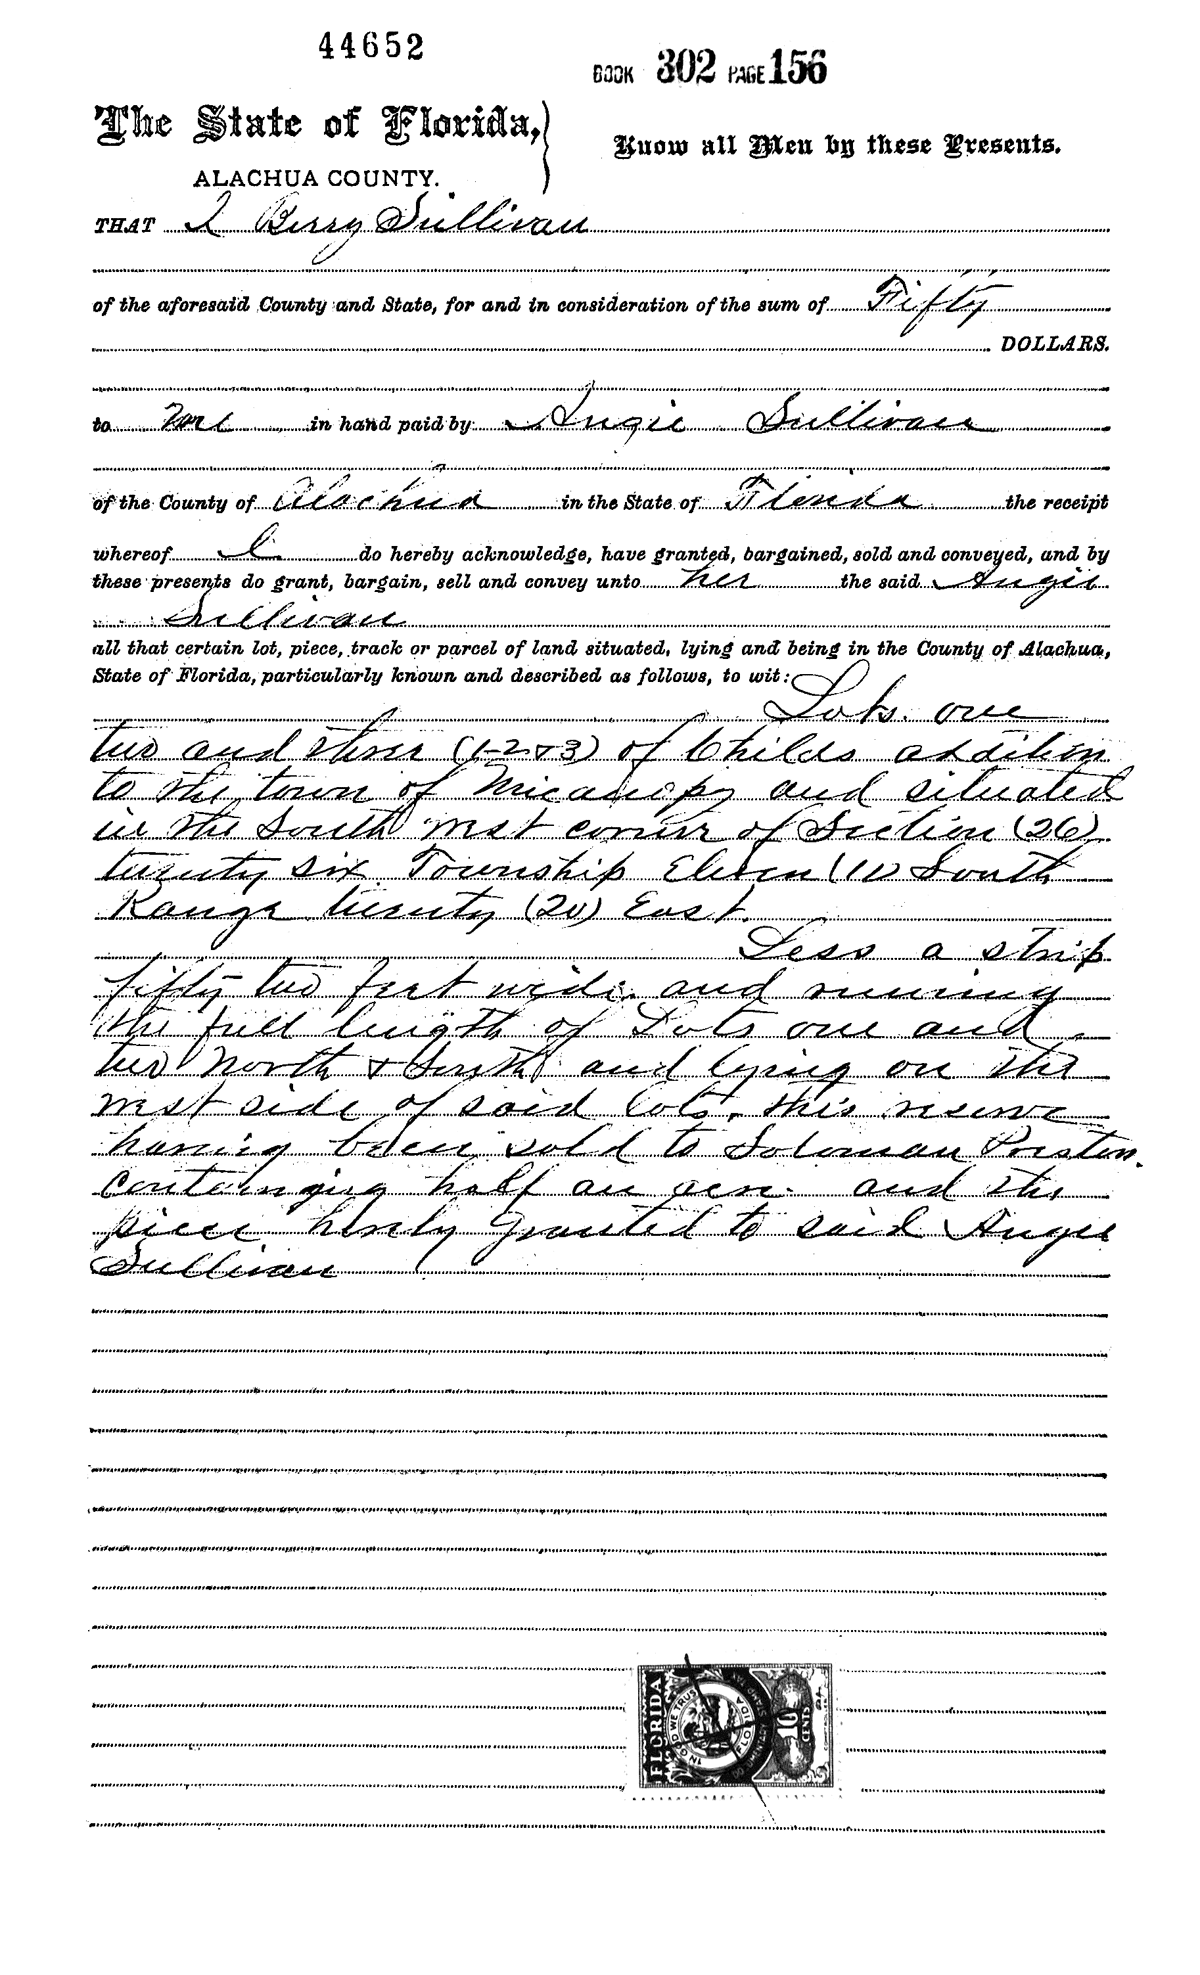 44652
BOOK 302 PAGE 156
The State of Florida,
Know all Men by these Presents.
ALACHUA COUNTY.
THAT I Berry Sullivan
of the aforesaid County and State, for and in consideration of the sum of Fifty
DOLLARS.
to me in hand paid by Angie Sullivan
of the County of Alachua in the State of Florida the receipt
whereof I do hereby acknowledge, have granted, bargained, sold and conveyed, and by
these presents do grant, bargain, sell and convey unto her the said Angie
Sullivan
all that certain lot, piece, track or parcel of land situated, lying and being in the County of Alachua,
State of Florida, particularly known and described as follows, to wit:
Lots one
two and three (1-2 & 3) of Childs addition
to the town of Micanopy and situated
in the South west corner of Section (26)
twenty six Township Eleven (11) South
Range twenty (20) East.
Less a strip
fifty two feet wide and running
the full length of Lots one and
two North & South and lying on the
west side of said lots, this reserve
having been sold to Soloman Preston.
containging half an acre. and the
piece hereby granted to said Angie
Sullivan
FLORIDA
IN GOD WE TRUST
FLORIDA
DOCUMENTARY STAMP TAX
10
CENTS